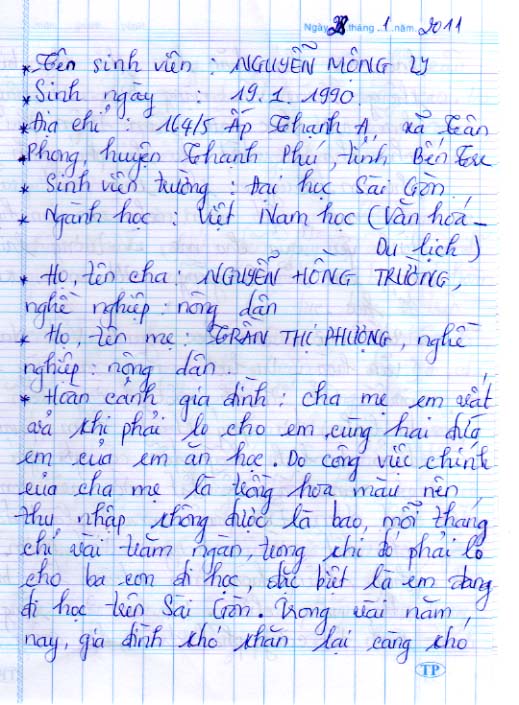 Ngày 28 tháng 1 năm 2011
* Tên sinh viên : NGUYỄN MỘNG LY
* Sinh ngày : 19.1.1990
* Địa chỉ : 164/5 Ấp Thạnh A, xã Tân
Phong, huyện Thạnh Phú, tỉnh Bến Tre
* Sinh viên trường : Đại học Sài Gòn.
* Ngành học : Việt Nam học (Văn hoá –
Du lịch)
* Họ, tên cha : NGUYỄN HỒNG TRƯỜNG,
nghề nghiệp : nông dân
* Họ, tên mẹ : TRẦN THỊ PHƯỢNG, nghề
nghiệp : nông dân.
* Hoàn cảnh gia đình : cha mẹ em vất
vả khi phải lo cho em cùng hai đứa
em của em ăn học. Do công việc chính
của cha mẹ là trồng hoa màu nên
thu nhập không được là bao, mỗi tháng
chỉ vài trăm ngàn, trong khi đó phải lo
cho ba con đi học, đặc biệt là em đang
đi học trên Sài Gòn. Trong vài năm
nay, gia đình khó khăn lại càng khó
TP